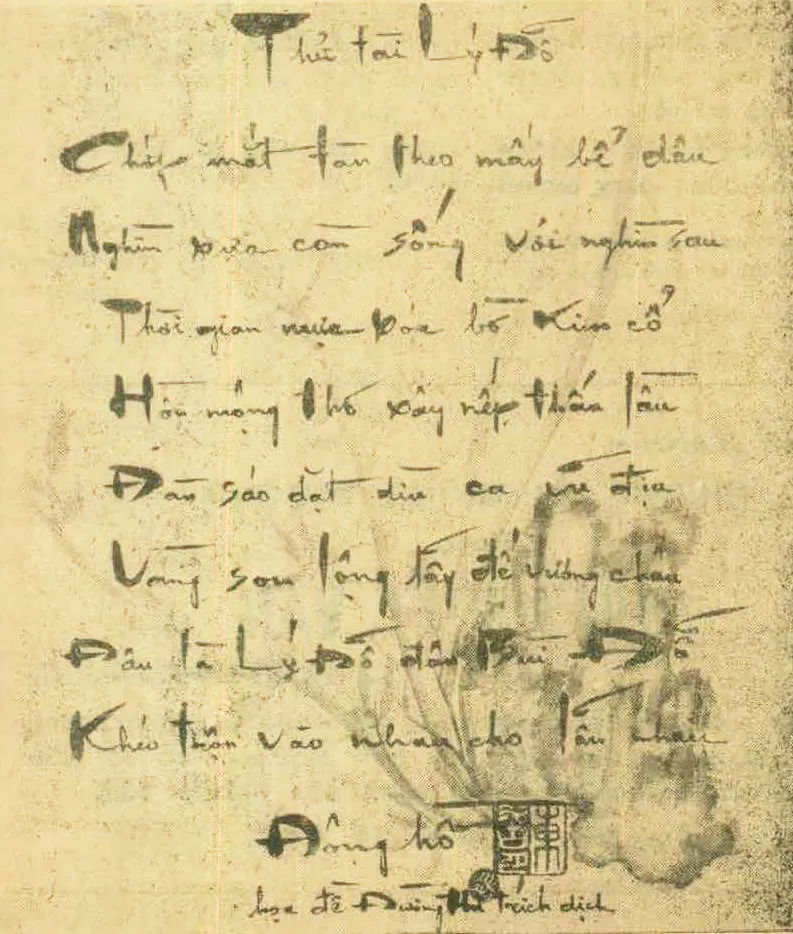 Thử tài Lý Đỗ
Chớp mắt tàn theo mấy bể dâu
Nghìn xưa còn sống với nghìn sau
Thời gian mưa xóa bờ kim cổ
Hồn mộng thơ xây nếp thẩn lâu
Đàn sáo dặt dìu ca ưu địu
Vàng son lộng lẫy đế vương chầu
Đâu là Lý Đỗ đâu Bùi Đỗ
Khéo trộn vào nhau cho lẫn nhau
Đông hồ
họa đề Đường thi trích dịch